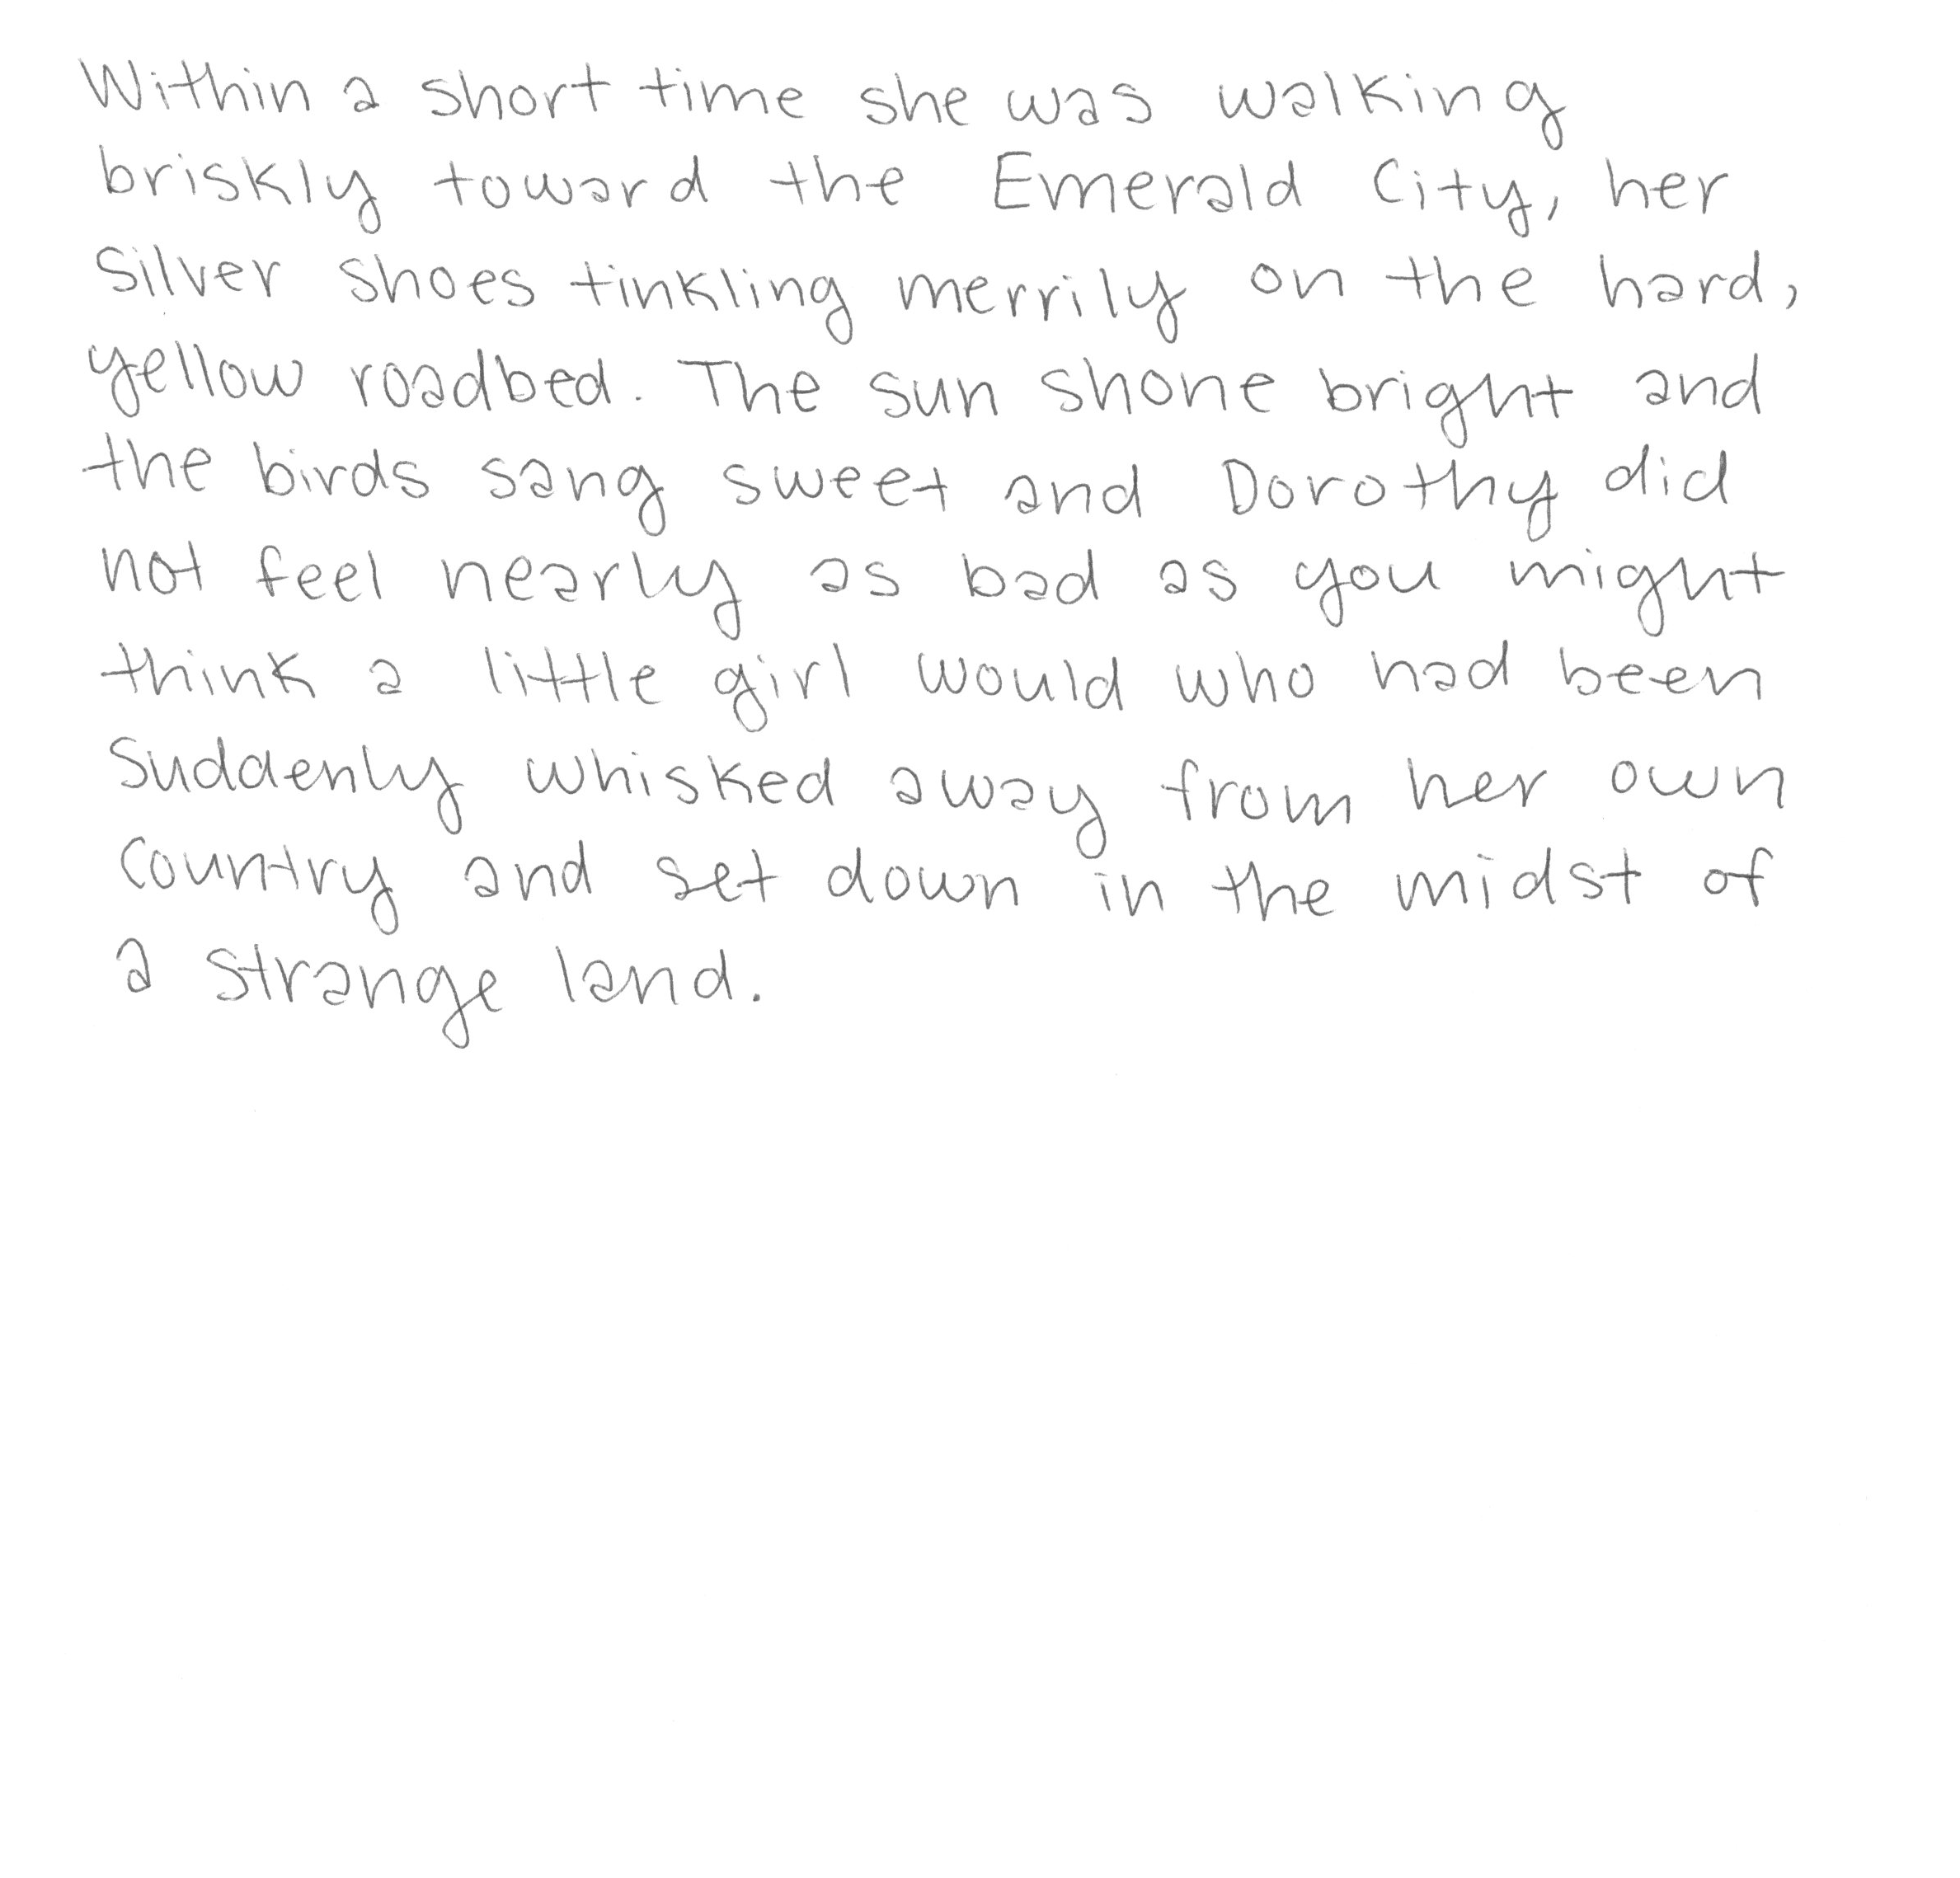 Within a short time she was walking
briskly toward the Emerald City, her
silver shoes tinkling merrily on the hard,
yellow roadbed. The sun shone bright and
the birds sang sweet and Dorothy did
not feel nearly as bad as you might
think a little girl would who had been
suddenly whisked away from her own
country and set down in the midst of
a strange land.